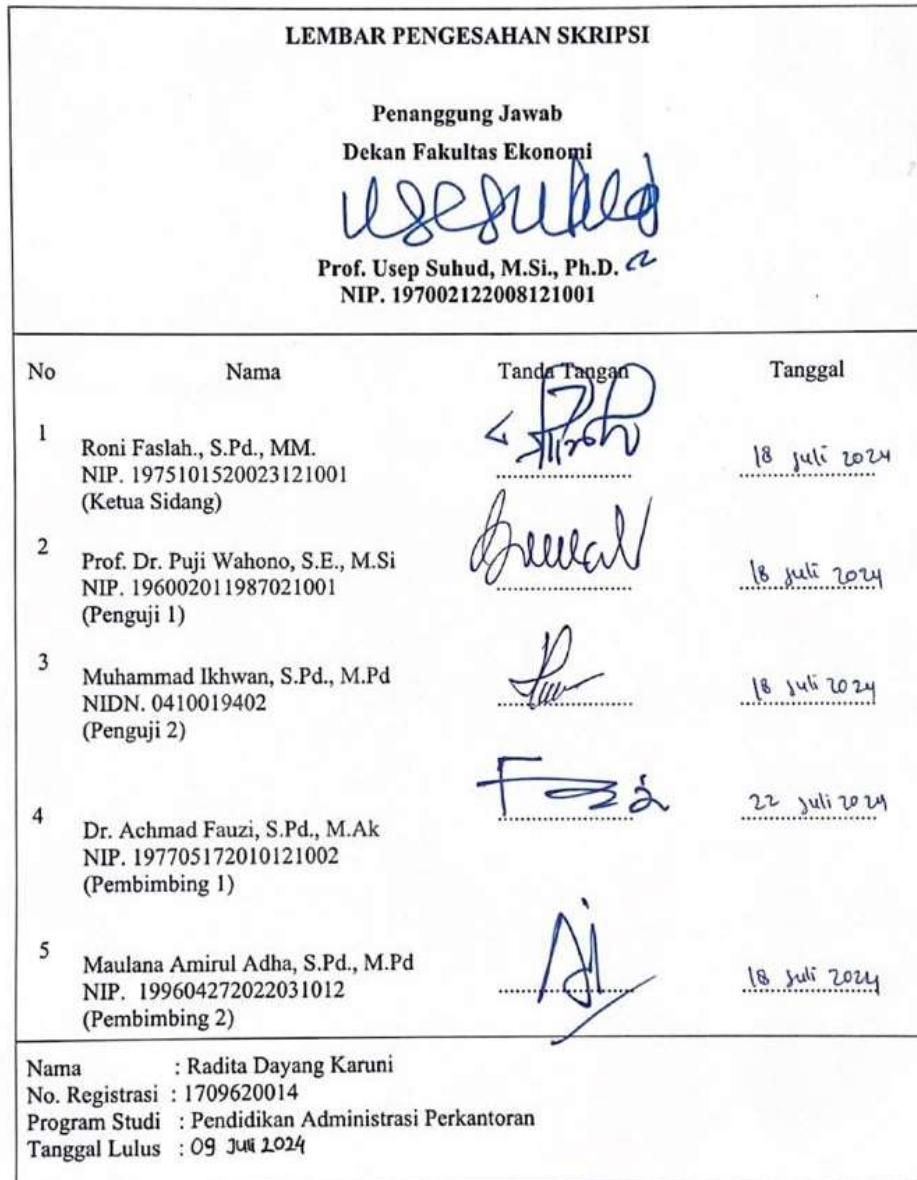 LEMBAR PENGESAHAN SKRIPSI
Penanggung Jawab
Dekan Fakultas Ekonomi
Prof. Usep Suhud, M.Si., Ph.D.
NIP. 197002122008121001
No Nama Tanda Tangan Tanggal
1
Roni Faslah., S.Pd., MM. 18 juli 2024
NIP. 1975101520023121001
(Ketua Sidang)
2
Prof. Dr. Puji Wahono, S.E., M.Si 18 juli 2024
NIP. 196002011987021001
(Penguji 1)
3
Muhammad Ikhwan, S.Pd., M.Pd 18 juli 2024
NIDN. 0410019402
(Penguji 2)
4 22 juli 2024
Dr. Achmad Fauzi, S.Pd., M.Ak
NIP. 197705172010121002
(Pembimbing 1)
5
Maulana Amirul Adha, S.Pd., M.Pd 18 juli 2024
NIP. 199604272022031012
(Pembimbing 2)
Nama : Radita Dayang Karuni
No. Registrasi : 1709620014
Program Studi : Pendidikan Administrasi Perkantoran
Tanggal Lulus : 09 Juli 2024